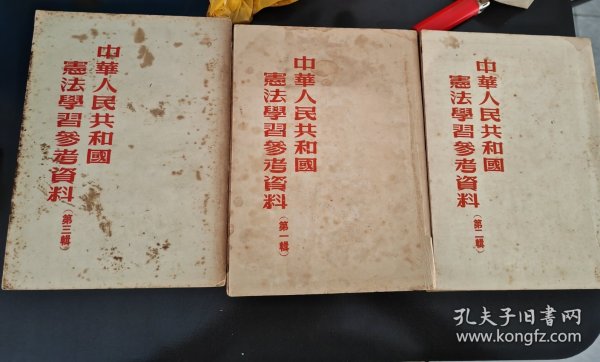 中華人民共和國
憲法學習參考資料
（第三輯）
中華人民共和國
憲法學習參考資料
（第一輯）
中華人民共和國
憲法學習參考資料
（第二輯）
孔夫子旧书网
www.kongfz.com